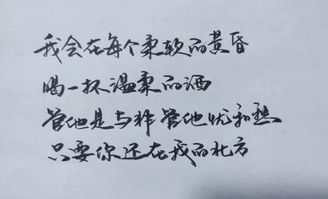 我会在每个柔软的黄昏
喝一杯温柔的酒
管他是与非 管他忧和愁
只要你还在我的北方